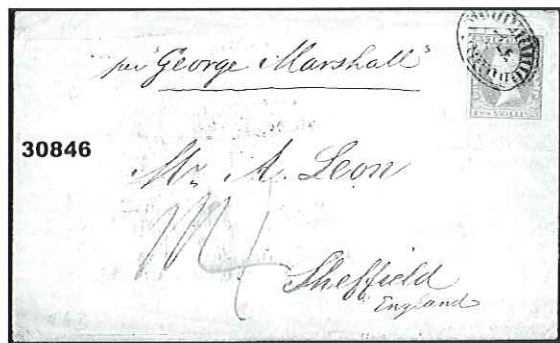 per "George Marshall"
30846
Mr. A. Leon
Sheffield
England